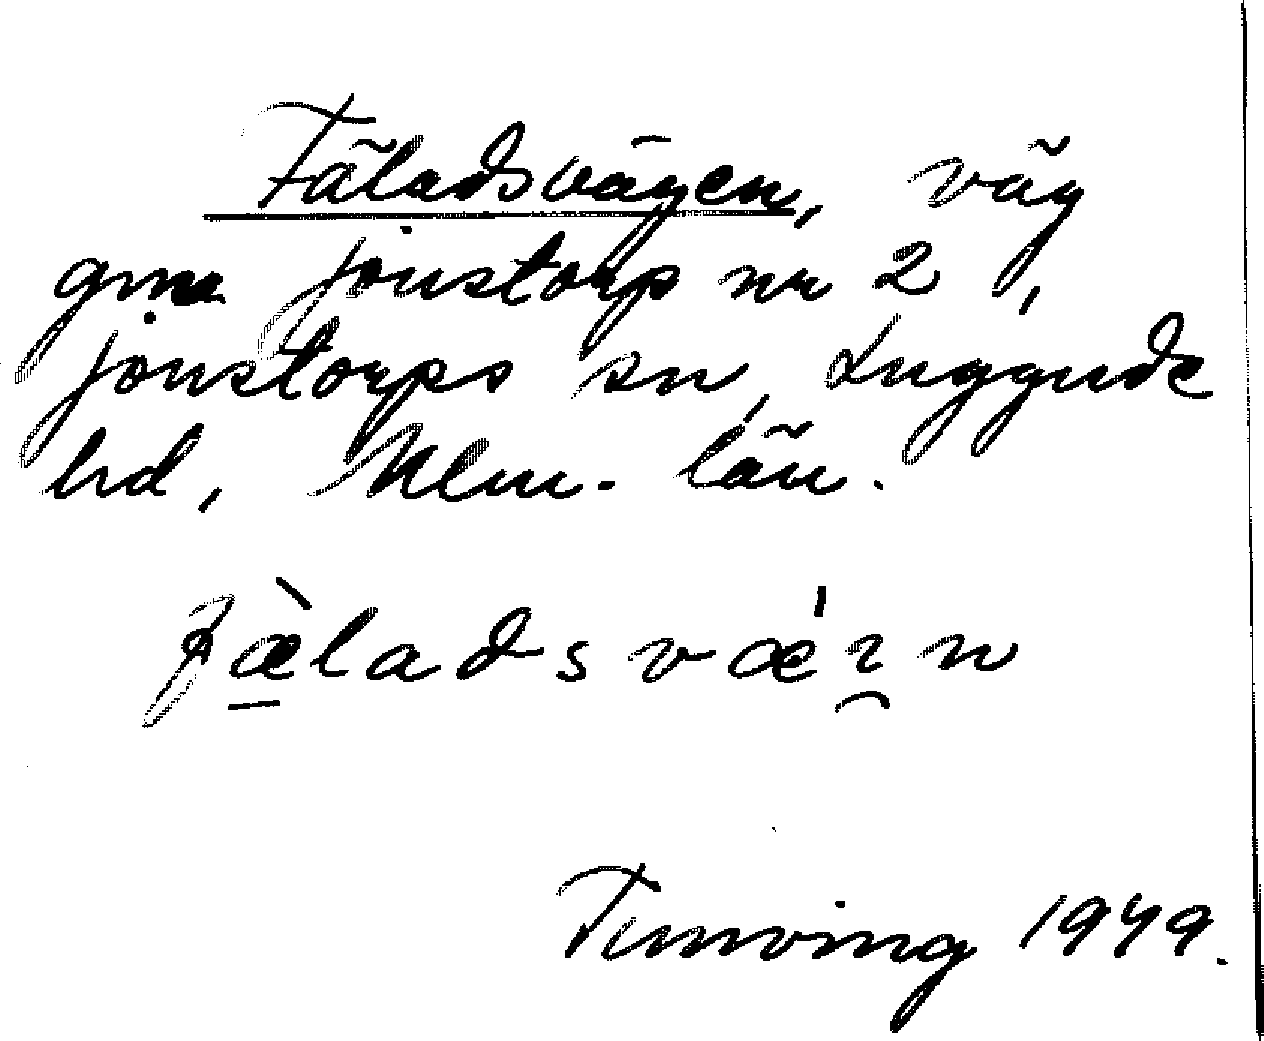 Fäladsvägen, väg
gm Jonstorp nr 2,
Jonstorps sn, Luggude
hd, Mlm. län.
fæ̀ladsvǽɿ̯n
Tunving 1949.